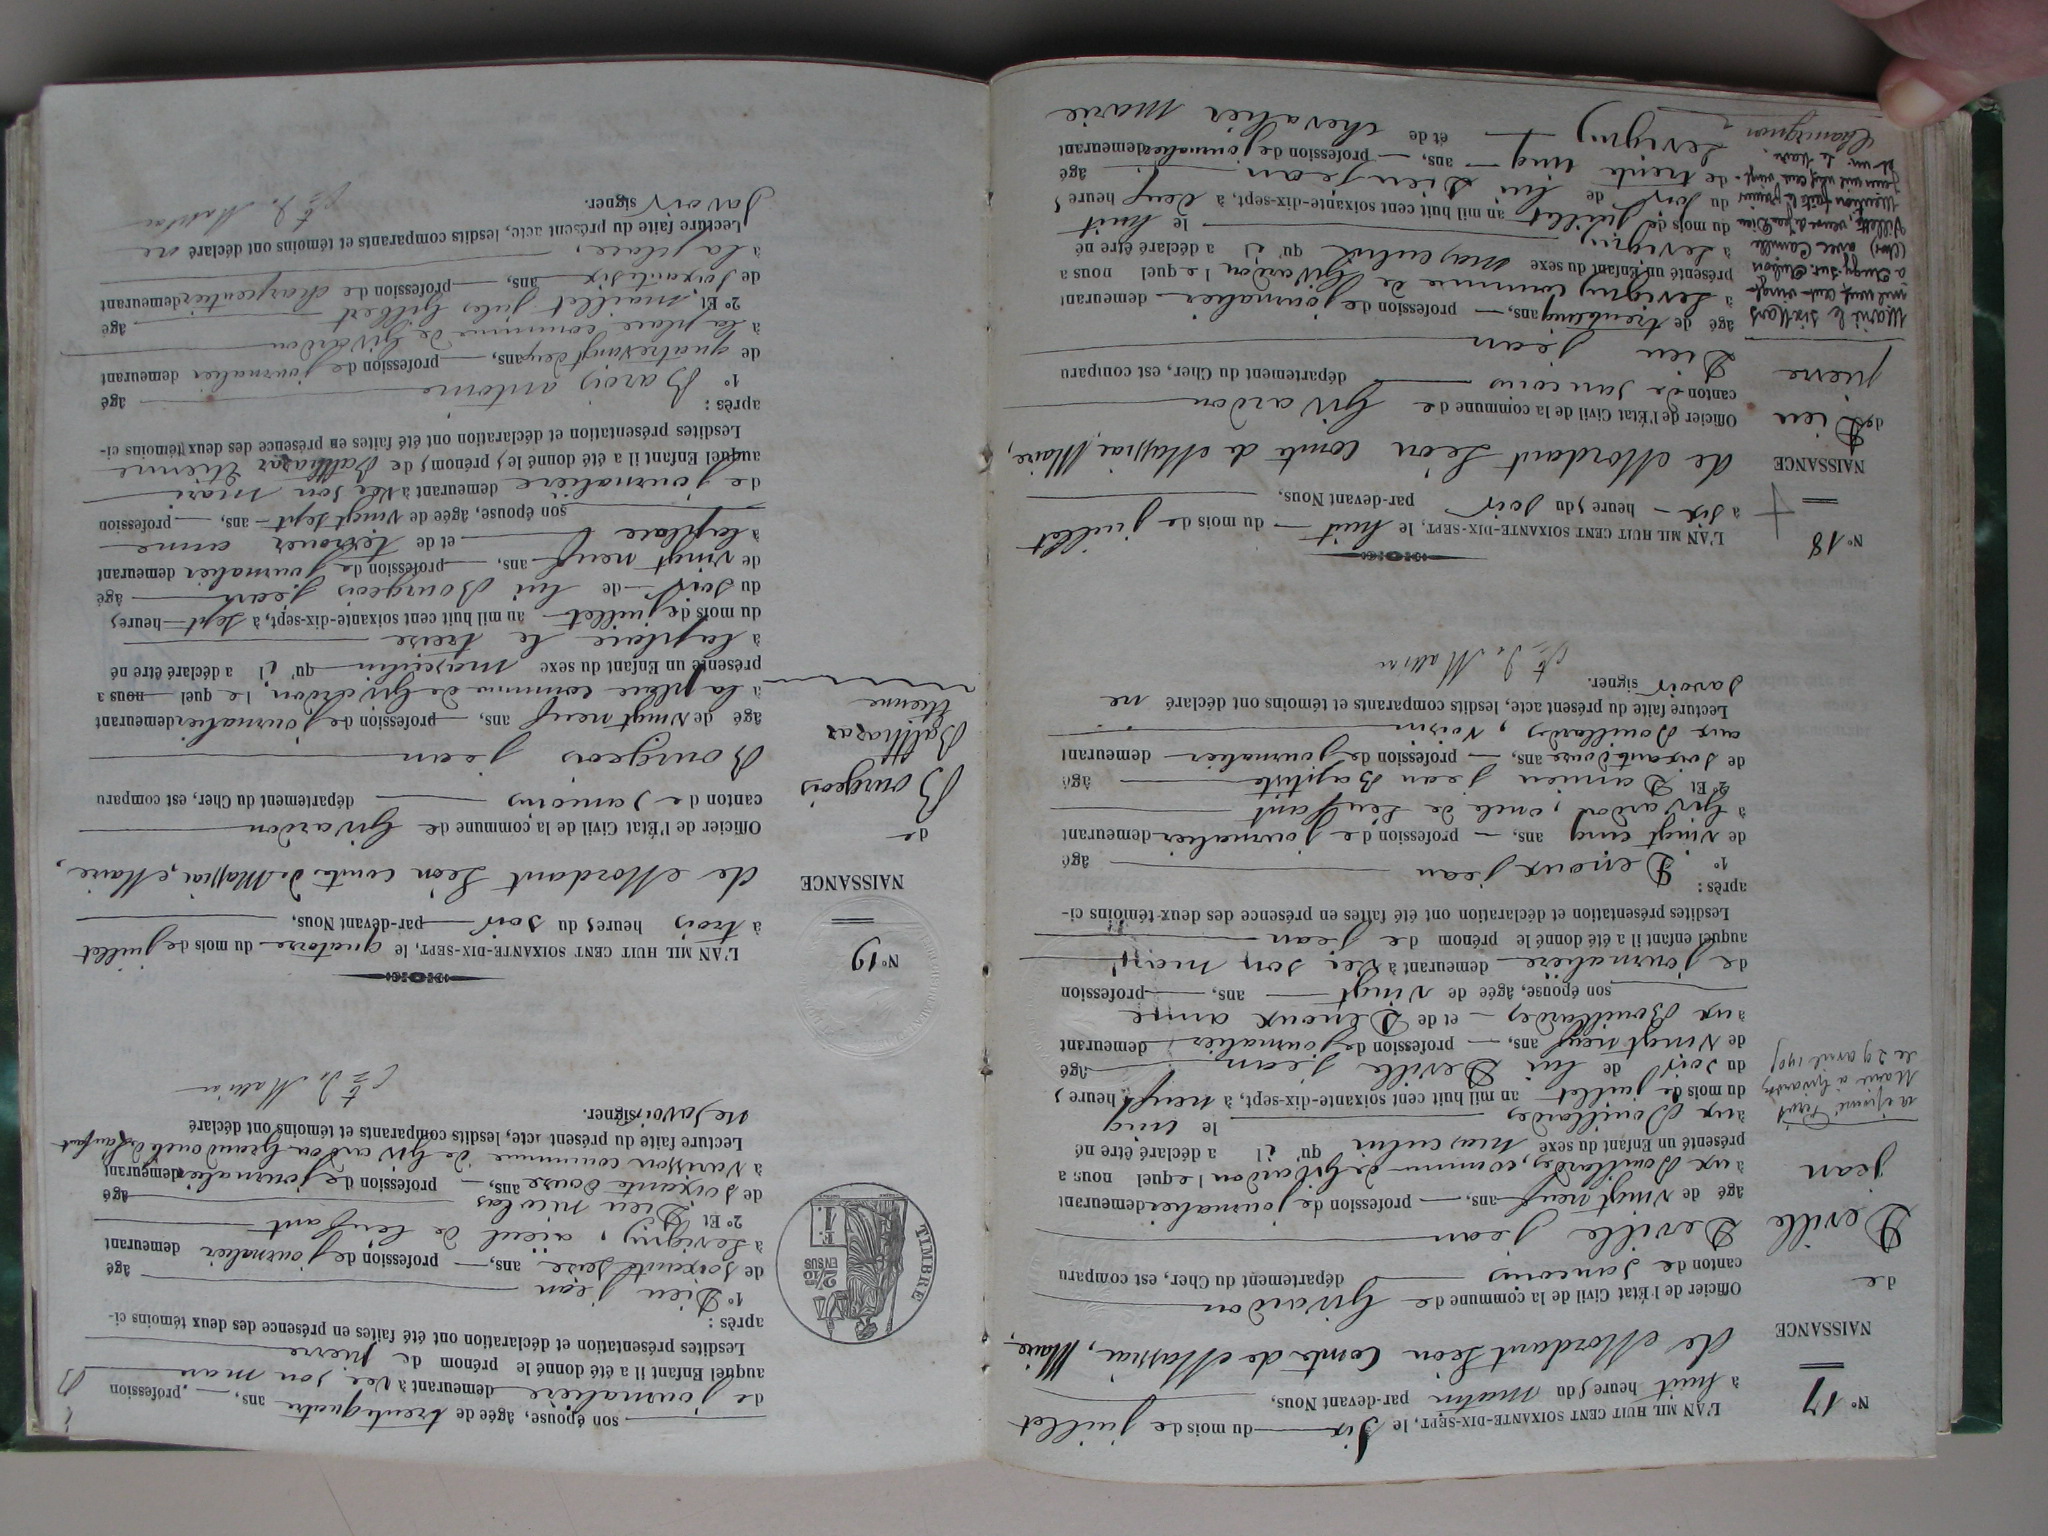 N° 17
NAISSANCE
de
Deville
jean
Marié à Givardon
le 29 avril 1905
L'AN MIL HUIT CENT SOIXANTE-DIX-SEPT, le Six du mois de juillet
à huit heures du matin par-devant Nous,
de Mordant Léon Comte de Massiac, Maire,
Officier de l'État Civil de la commune de Givardon
canton de Sancoins département du Cher, est comparu
Deville jean
âgé de vingt neuf ans, profession de journalier demeurant
aux Bouillardes, commune de Givardon lequel nous a
présenté un Enfant du sexe masculin qu'il a déclaré être né
aux Bouillardes le cinq
du mois de juillet an mil huit cent soixante-dix-sept, à neuf heures
du soir de lui Deville jean âgé
de vingt neuf ans, profession de journalier demeurant
aux Bouillardes et de Denoux anne
son épouse, âgée de vingt ans, profession
de journalière demeurant avec son mari
auquel enfant il a été donné le prénom de jean
Lesdites présentation et déclaration ont été faites en présence des deux témoins ci-
après :
1° Denoux jean âgé
de vingt cinq ans, profession de journalier demeurant
à Givardon, oncle de l'enfant
2° Et Damien jean Baptiste âgé
de soixante douze ans, profession de journalier demeurant
aux Bouillardes, voisin
Lecture faite du présent acte, lesdits comparants et témoins ont déclaré ne
savoir signer.
N° 18
NAISSANCE
de Dieu
pierre
Marié le six Mars
mil neuf cent vingt
à Augy-sur-Aubois
(Cher) avec Camille
L'AN MIL HUIT CENT SOIXANTE-DIX-SEPT, le huit du mois de juillet
à six heures du soir par-devant Nous,
de Mordant Léon Comte de Massiac, Maire,
Officier de l'État Civil de la commune de Givardon
canton de Sancoins département du Cher, est comparu
Dieu jean
âgé de trente cinq ans, profession de journalier demeurant
à Levigny commune de Givardon lequel nous a
présenté un Enfant du sexe masculin qu'il a déclaré être né
à Levigny le huit
du mois de juillet an mil huit cent soixante-dix-sept, à neuf heures
du de lui Dieu jean âgé
de trente cinq ans, profession de journalier demeurant
Levigny et de chevalier marie
son épouse, âgée de trente quatre ans, profession
de journalière demeurant avec son mari
auquel Enfant il a été donné le prénom de pierre
Lesdites présentation et déclaration ont été faites en présence des deux témoins ci-
après :
1° Dieu jean âgé
de soixante seize ans, profession de journalier demeurant
à Levigny, aïeul de l'enfant
2° Et Dieu nicolas âgé
de soixante douze ans, profession de journalier demeurant
à commune de Givardon Grand oncle de l'enfant
Lecture faite du présent acte, lesdits comparants et témoins ont déclaré
ne savoir signer.
TIMBRE
2/10
EN SUS
N° 19
NAISSANCE
de
Bourgeois
Balthazar
Etienne
L'AN MIL HUIT CENT SOIXANTE-DIX-SEPT, le quatorze du mois de juillet
à trois heures du soir par-devant Nous,
de Mordant Léon comte de Massiac, Maire,
Officier de l'État Civil de la commune de Givardon
canton de Sancoins département du Cher, est comparu
Bourgeois jean
âgé de vingt neuf ans, profession de journalier demeurant
à la place commune de Givardon, lequel nous a
présenté un Enfant du sexe masculin qu'il a déclaré être né
à la place le treize
du mois de juillet an mil huit cent soixante-dix-sept, à sept heures
du soir de lui Bourgeois jean âgé
de vingt neuf ans, profession de journalier demeurant
à la place et de anne
son épouse, âgée de vingt sept ans, profession
de journalière demeurant avec son mari
auquel Enfant il a été donné les prénoms de Balthazar Etienne
Lesdites présentation et déclaration ont été faites en présence des deux témoins ci-
après :
1° Barois antoine âgé
de quatrevingt deux ans, profession de journalier demeurant
à la place commune de Givardon
2° Et maillet jules Gilbert âgé
de soixante six ans, profession de charpentier demeurant
à la place,
Lecture faite du présent acte, lesdits comparants et témoins ont déclaré ne
savoir signer.